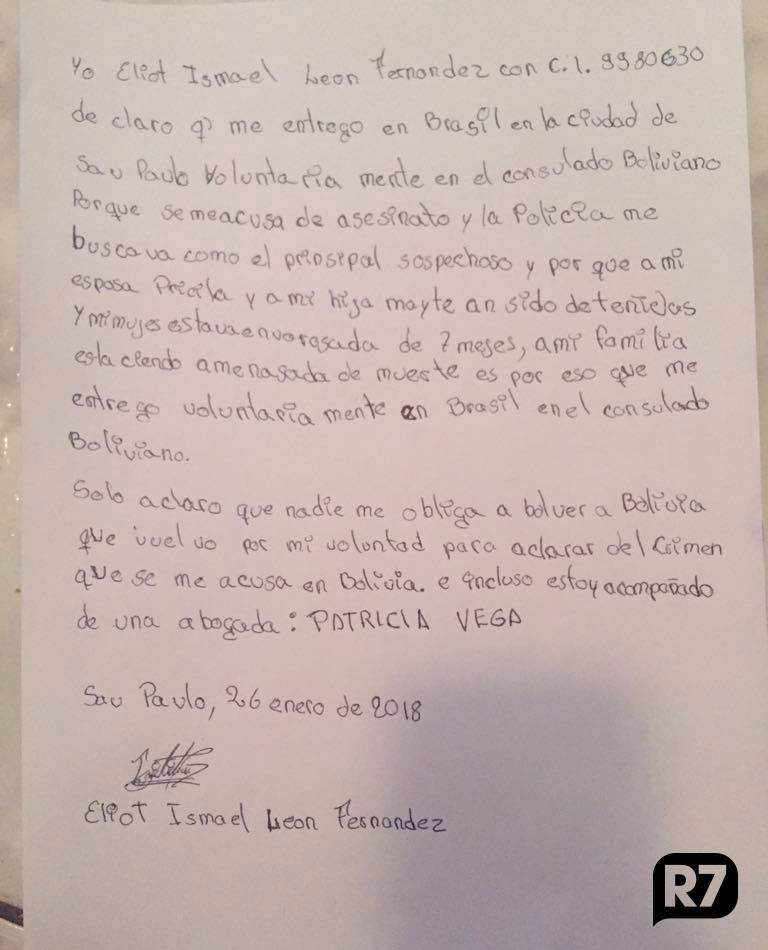 Yo Eliot Ismael Leon Fernandez con C.I. 9980630
de claro q) me entrego en Brasil en la ciudad de
Sau Paulo Voluntaria mente en el consulado Boliviano
Porque se me acusa de asesinato y la Policia me
buscava como el prinsipal sospechoso y por que a mi
esposa Pricila y a mi hija mayte an sido detenidas
y mi mujes estava envorasada de 7 meses, a mi familia
esta ciendo amenasada de mueste es por eso que me
entrego voluntaria mente en Brasil en el consulado
Boliviano.
Solo aclaro que nadie me obliga a bolver a Bolivia
que vuelvo por mi voluntad para aclarar del Crimen
que se me acusa en Bolivia. e incluso estoy acompañado
de una abogada: PATRICIA VEGA
Sau Paulo, 26 enero de 2018
Eliot Ismael Leon Fernandez
R7